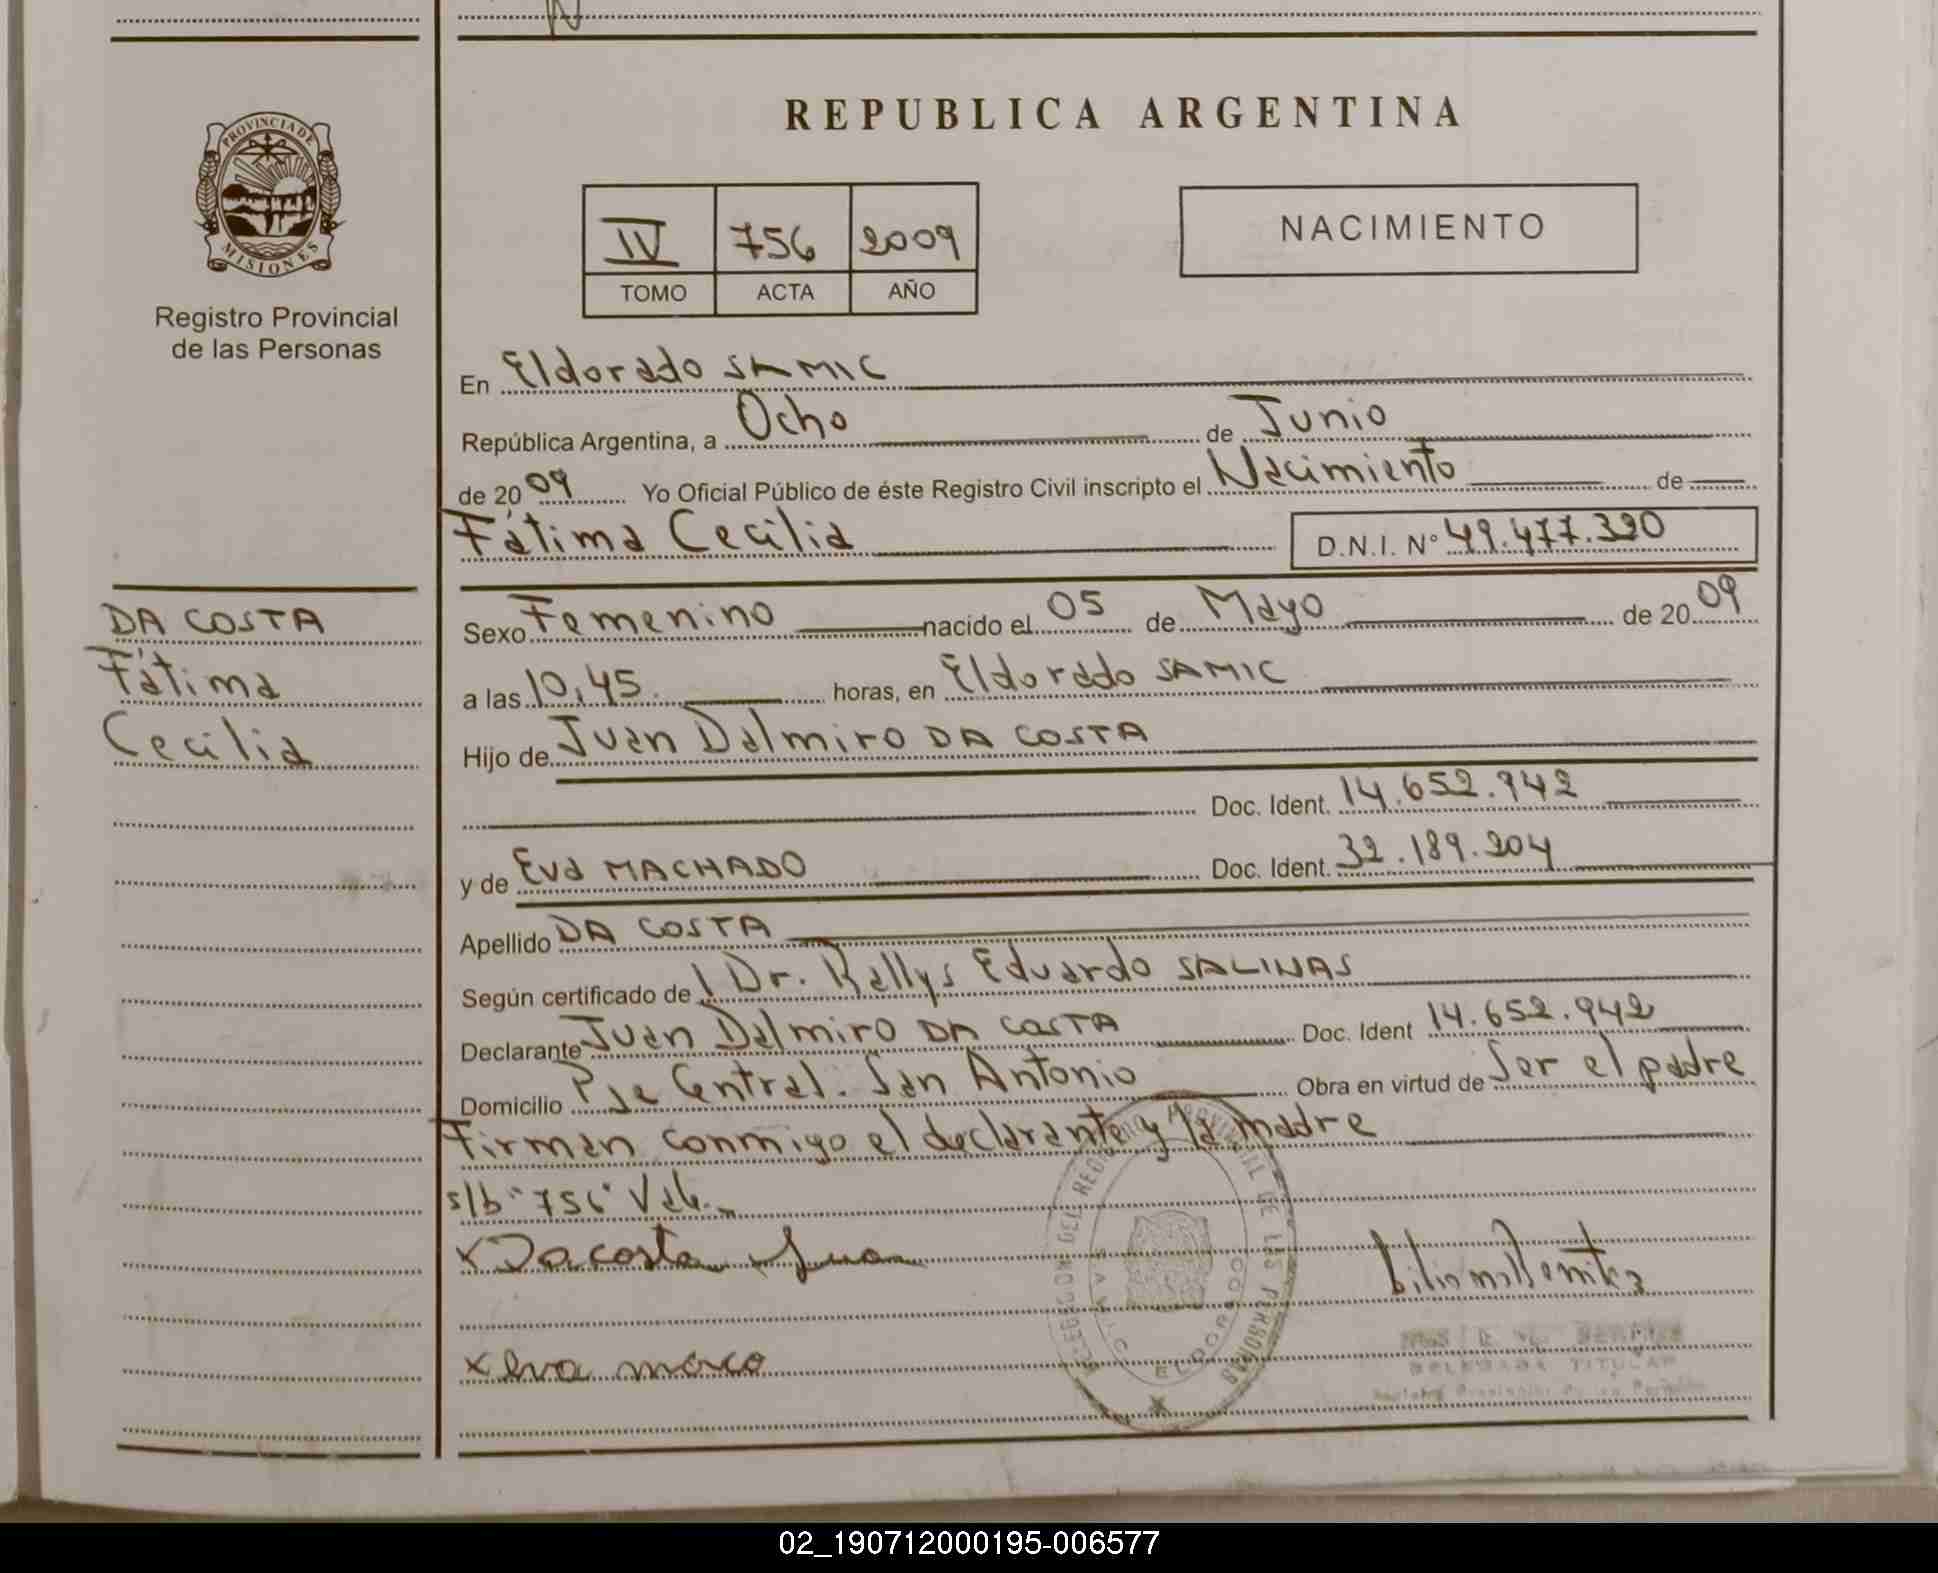 REPUBLICA ARGENTINA
PROVINCIA DE
MISIONES
Registro Provincial
de las Personas
IV 756 2009
TOMO ACTA AÑO
NACIMIENTO
En Eldorado SAMIC
República Argentina, a Ocho de Junio
de 2009 Yo Oficial Público de éste Registro Civil inscripto el Nacimiento de
Fátima Cecilia D.N.I. N° 49.477.320
DA COSTA
Fátima
Cecilia
Sexo Femenino nacido el 05 de Mayo de 2009
a las 10,45. horas, en Eldorado SAMIC
Hijo de Juan Dalmiro DA COSTA
Doc. Ident. 14.652.942
y de Eva MACHADO Doc. Ident. 32.189.204
Apellido DA COSTA
Según certificado del Dr. Rallys Eduardo SALINAS
Declarante Juan Dalmiro DA COSTA Doc. Ident 14.652.942
Domicilio Pje Central. San Antonio Obra en virtud de Ser el padre
Firman conmigo el declarante y la madre
s/b "756" Vale.
x Dacosta Juan
x eva maca
DELEGACION DEL REGISTRO PROVINCIAL DE LAS PERSONAS
ELDORADO
DELEGADA TITULAR
02_190712000195-006577